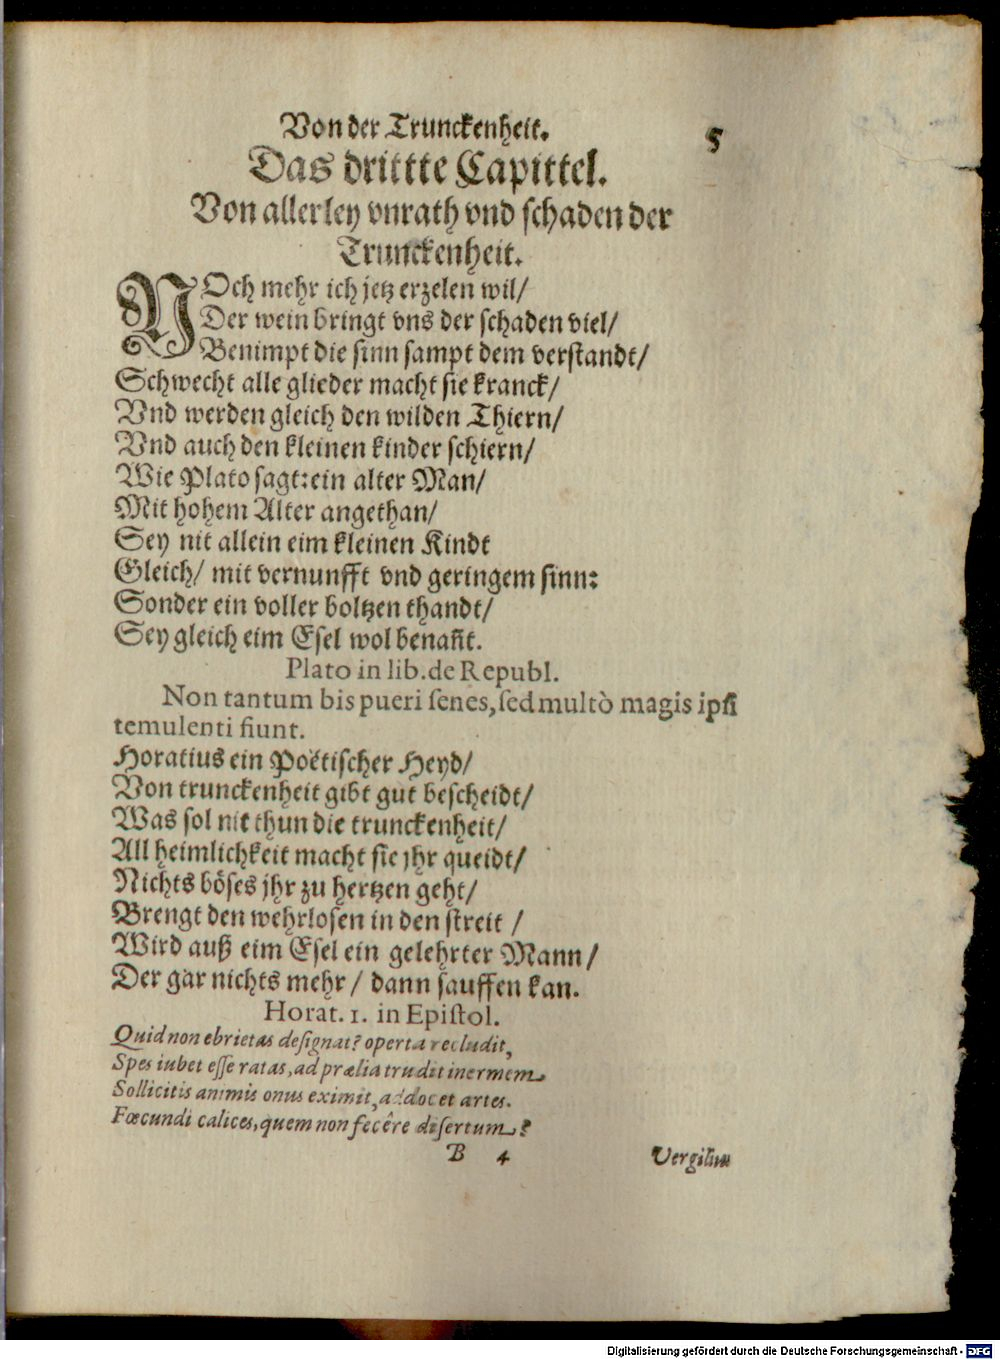 Von der Trunckenheit.
5
Das drittte Capittel.
Von allerley vnrath vnd schaden der
Trunckenheit.
NOch mehr ich jetz erzelen wil/
Der wein bringt vns der schaden viel/
Benimpt die sinn sampt dem verstandt/
Schwecht alle glieder macht sie kranck/
Vnd werden gleich den wilden Thiern/
Vnd auch den kleinen kinder schiern/
Wie Plato sagt: ein alter Man/
Mit hohem Alter angethan/
Sey nit allein eim kleinen Kindt
Gleich/ mit vernunfft vnd geringem sinn:
Sonder ein voller boltzen thandt/
Sey gleich eim Esel wol benañt.
Plato in lib. de Republ.
Non tantum bis pueri senes, sed multò magis ipsi
temulenti fiunt.
Horatius ein Poëtischer Heyd/
Von trunckenheit gibt gut bescheidt/
Was sol nit thun die trunckenheit/
All heimlichkeit macht sie jhr queidt/
Nichts böses jhr zu hertzen geht/
Brengt den wehrlosen in den streit /
Wird auß eim Esel ein gelehrter Mann/
Der gar nichts mehr/ dann sauffen kan.
Horat. 1. in Epistol.
Quid non ebrietas designat? operta recludit,
Spes iubet esse ratas, ad prælia trudit inermem
Sollicitis animis onus eximit, addocet artes.
Fœcundi calices, quem non fecêre disertum?
B 4
Vergilius
Digitalisierung gefördert durch die Deutsche Forschungsgemeinschaft - DFG